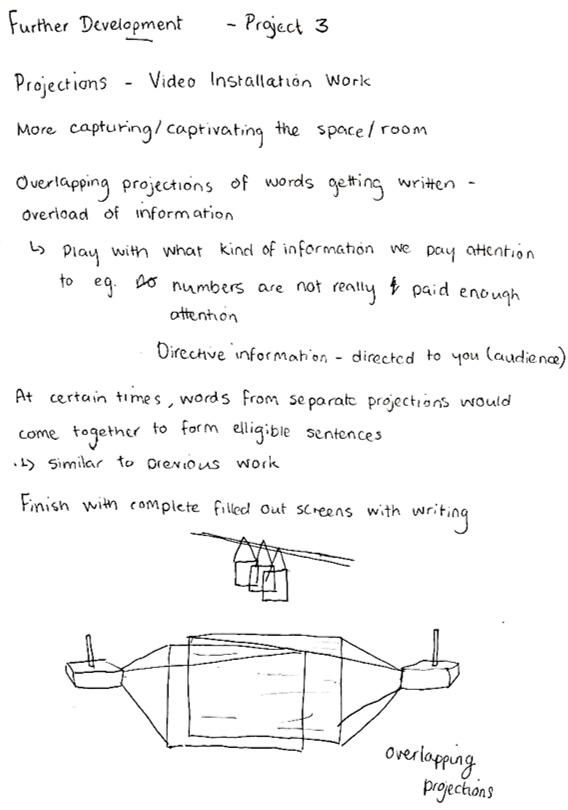 Further Development - Project 3
Projections - Video Installation Work
More capturing/captivating the space/room
Overlapping projections of words getting written -
overload of information
↳ Play with what kind of information we pay attention
to eg. numbers are not really paid enough
attention
Directive information - directed to you (audience)
At certain times, words from separate projections would
come together to form elligible sentences
↳ similar to previous work
Finish with complete filled out screens with writing
overlapping
projections